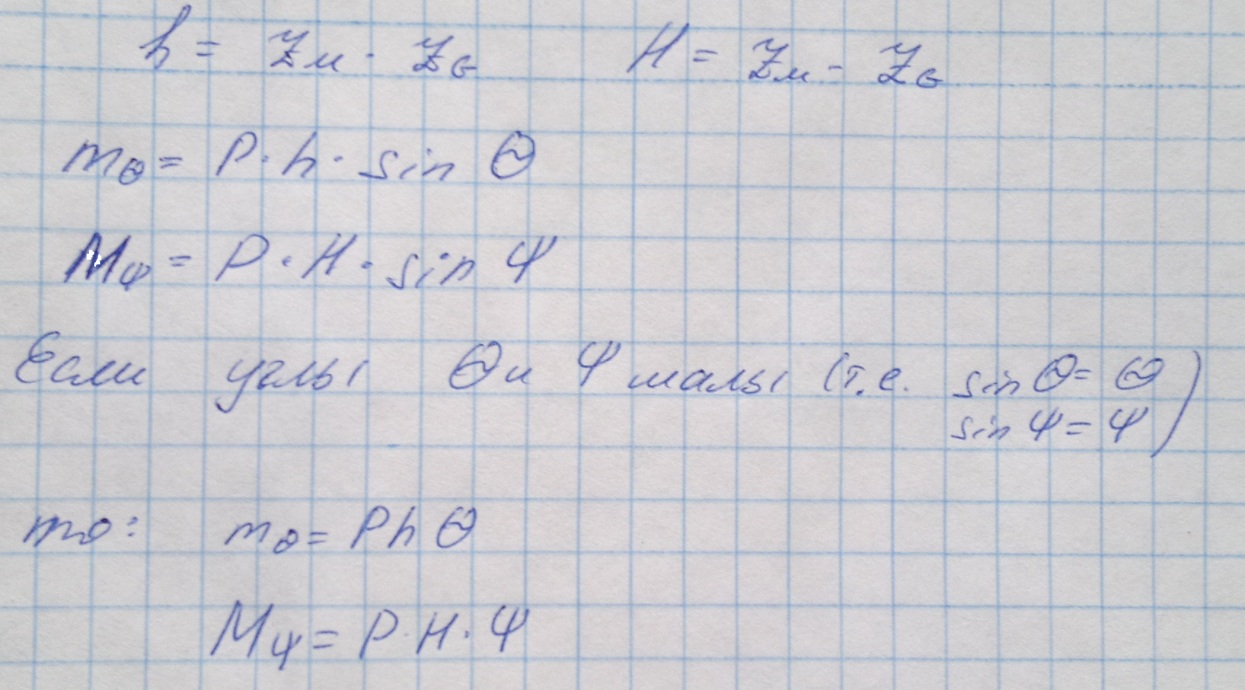 h = Zм - ZG H = Zм - ZG
mθ = P·h· sin Θ
MΨ = P·H· sin Ψ
Если углы Θ и Ψ малы (т.е. sin Θ = Θ
sin Ψ = Ψ)
то: mθ = P h Θ
MΨ = P·H·Ψ